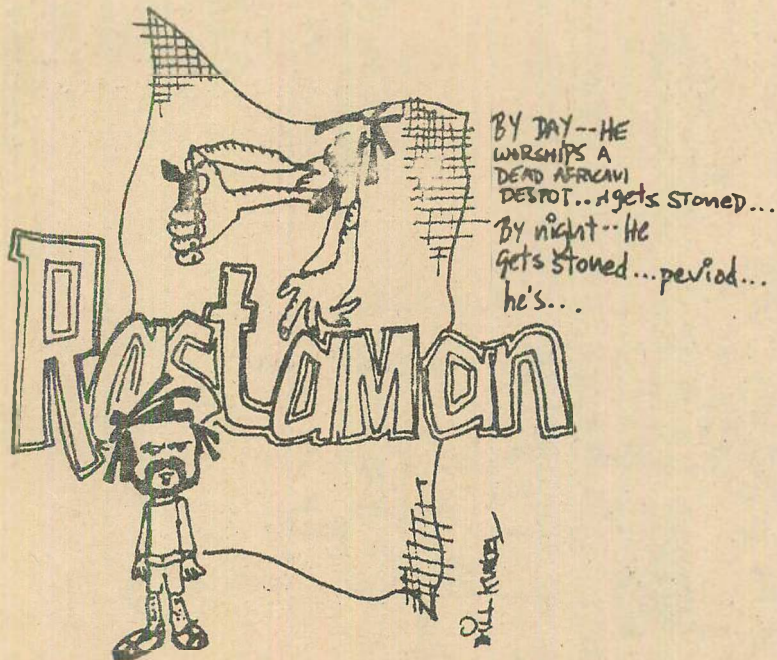 BY DAY--HE
WORSHIPS A
DEAD AFRICAN
DESPOT...n gets stoned...
By night--He
gets stoned...period...
he's...
Rastaman